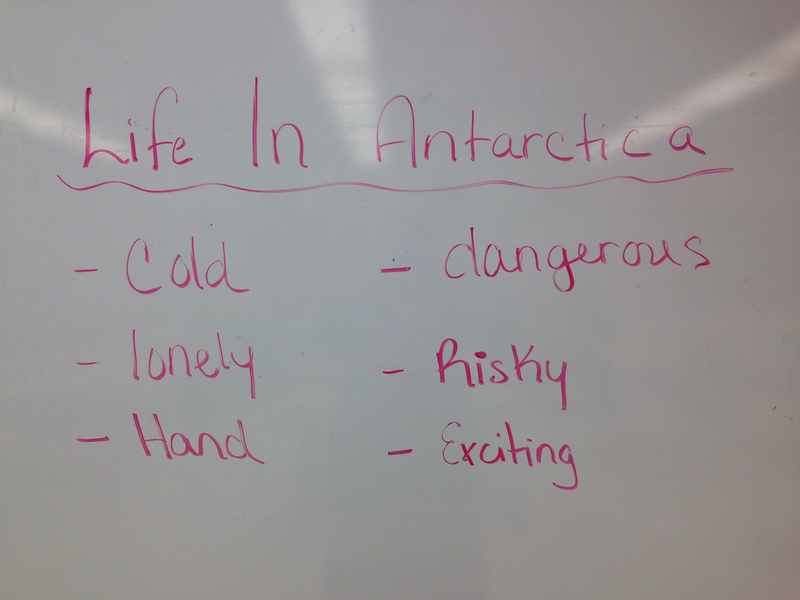 Life In Antarctica
- Cold
- dangerous
- lonely
- Risky
- Hand
- Exciting